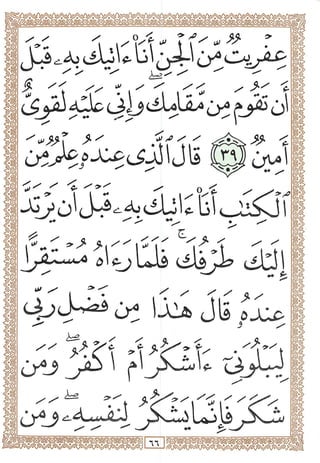 عِفْرِيتٌ مِّنَ ٱلْجِنِّ أَنَا۠ ءَاتِيكَ بِهِۦ قَبْلَ
أَن تَقُومَ مِن مَّقَامِكَ ۖ وَإِنِّى عَلَيْهِ لَقَوِىٌّ
أَمِينٌ ٣٩ قَالَ ٱلَّذِى عِندَهُۥ عِلْمٌ مِّنَ
ٱلْكِتَٰبِ أَنَا۠ ءَاتِيكَ بِهِۦ قَبْلَ أَن يَرْتَدَّ
إِلَيْكَ طَرْفُكَ ۚ فَلَمَّا رَءَاهُ مُسْتَقِرًّا
عِندَهُۥ قَالَ هَٰذَا مِن فَضْلِ رَبِّى
لِيَبْلُوَنِىٓ ءَأَشْكُرُ أَمْ أَكْفُرُ ۖ وَمَن
شَكَرَ فَإِنَّمَا يَشْكُرُ لِنَفْسِهِۦ ۖ وَمَن
٦٦